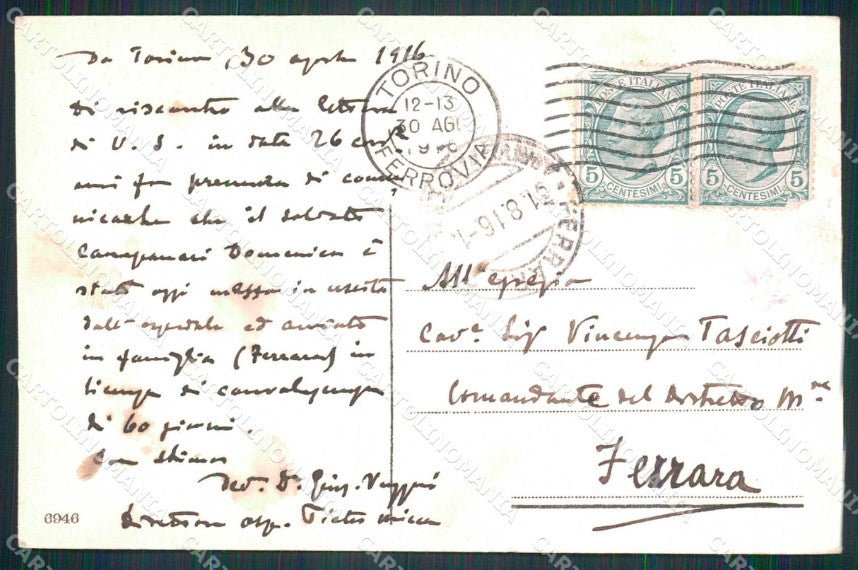 Da Torino, 30 agosto 1916
Di riscontro alla lettera
di V. S. in data 26 corr.
mi fo premura di comu
nicarle che il soldato
Campanari Domenico è
stato oggi messo in uscita
dall'ospedale ed avviato
in famiglia (Ferrara) in
licenza di convalescenza
di 60 giorni.
Con stima
Dev. D. Giu.
Direttore osp. Pietro Micca
6946
TORINO
12-13
30 AGO
1916
FERROVIA
FERRARA
31.8.16-1
POSTE ITALIANE
5 CENTESIMI 5
POSTE ITALIANE
5 CENTESIMI 5
All'egregio
Cav. Sig Vincenzo Tasciotti
Comandante del Distretto Mre
Ferrara
CARTOLINOMANIA